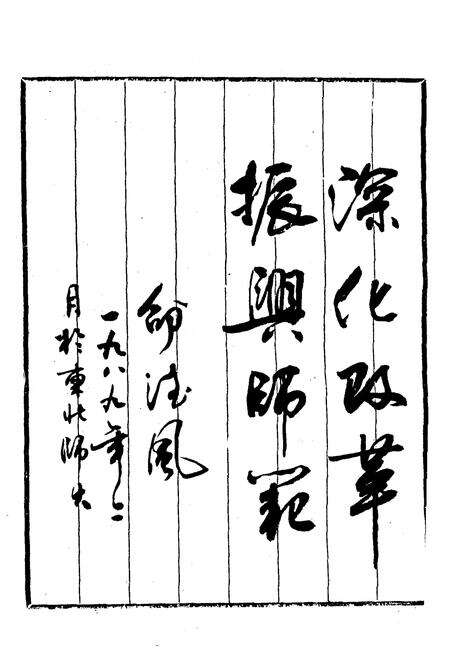 深化改革
振興師範
風
一九八九年二
月於東北師大